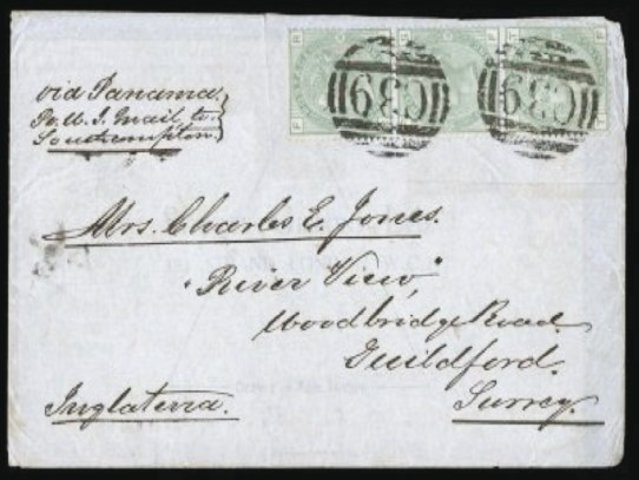 C39
C39
via Panama.
Per U.S. Mail to
Southampton.
Mrs. Charles E. Jones.
"River View",
Woodbridge Road.
Guildford.
Inglaterra.
Surrey.